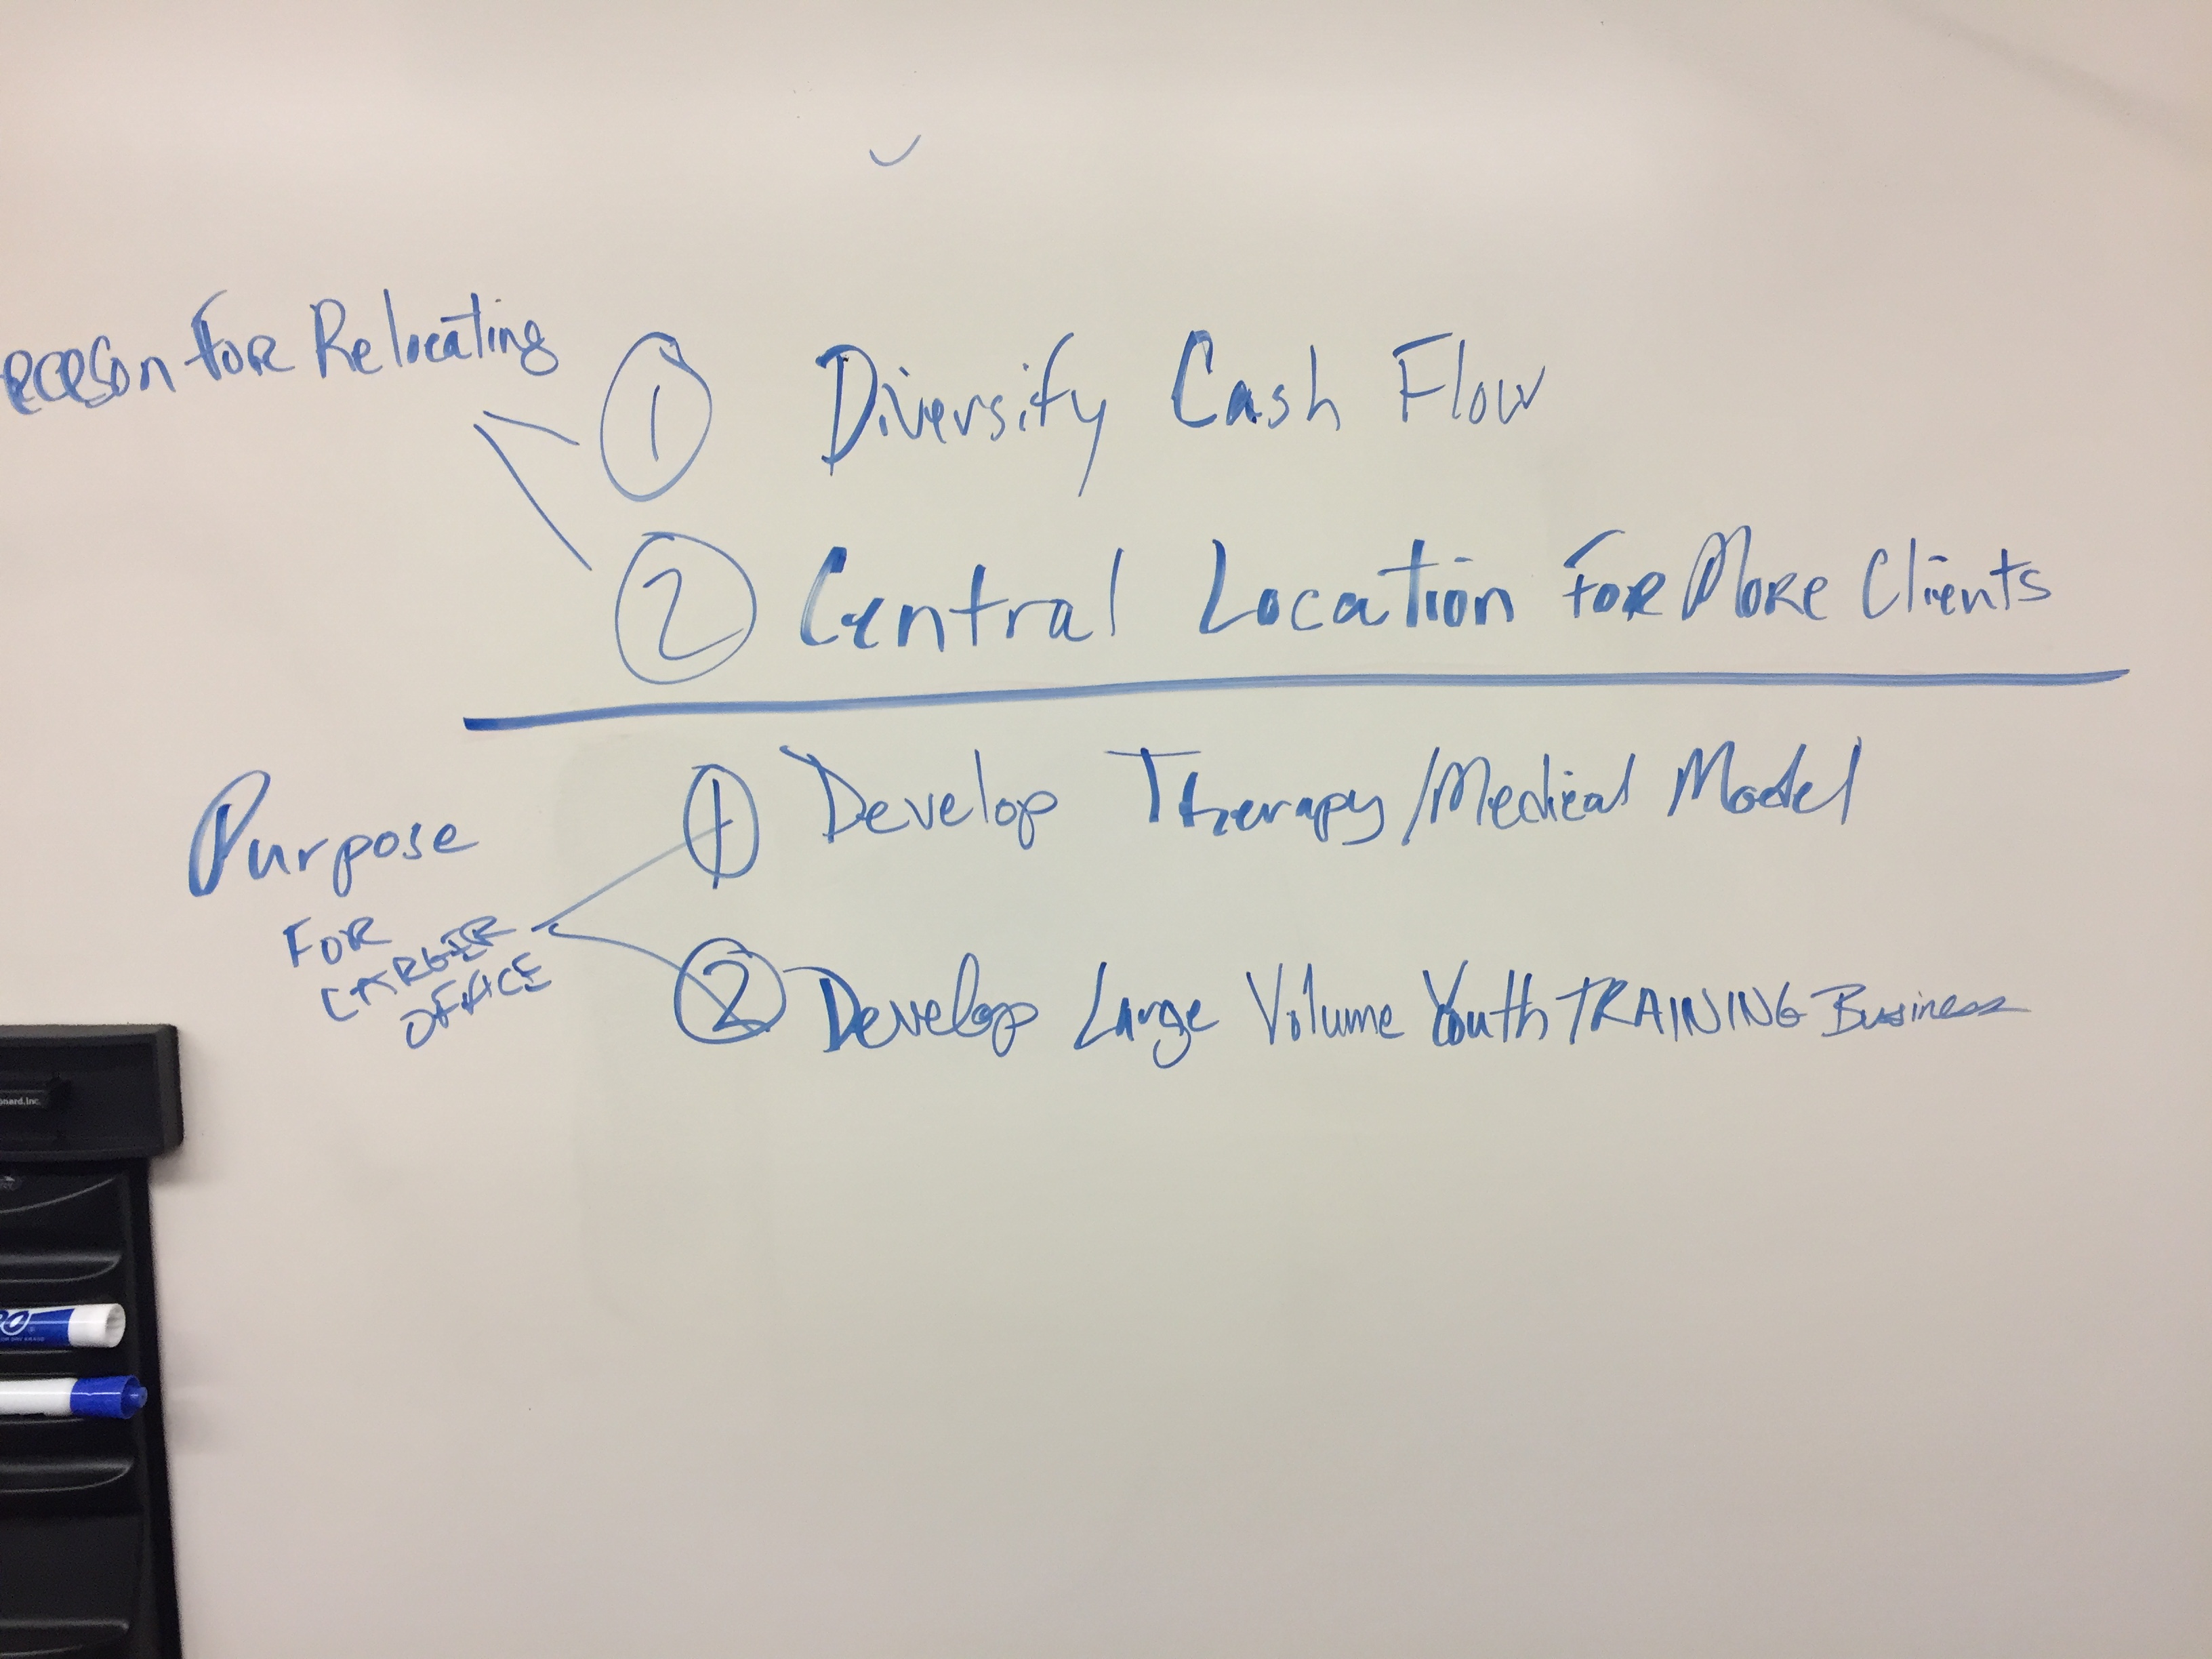 Reason For Relocating
① Diversify Cash Flow
② Central Location For More Clients
Purpose
FOR
LARGER
OFFICE
① Develop Therapy/Medical Model
② Develop Large Volume Youth TRAINING Business
onard, Inc.